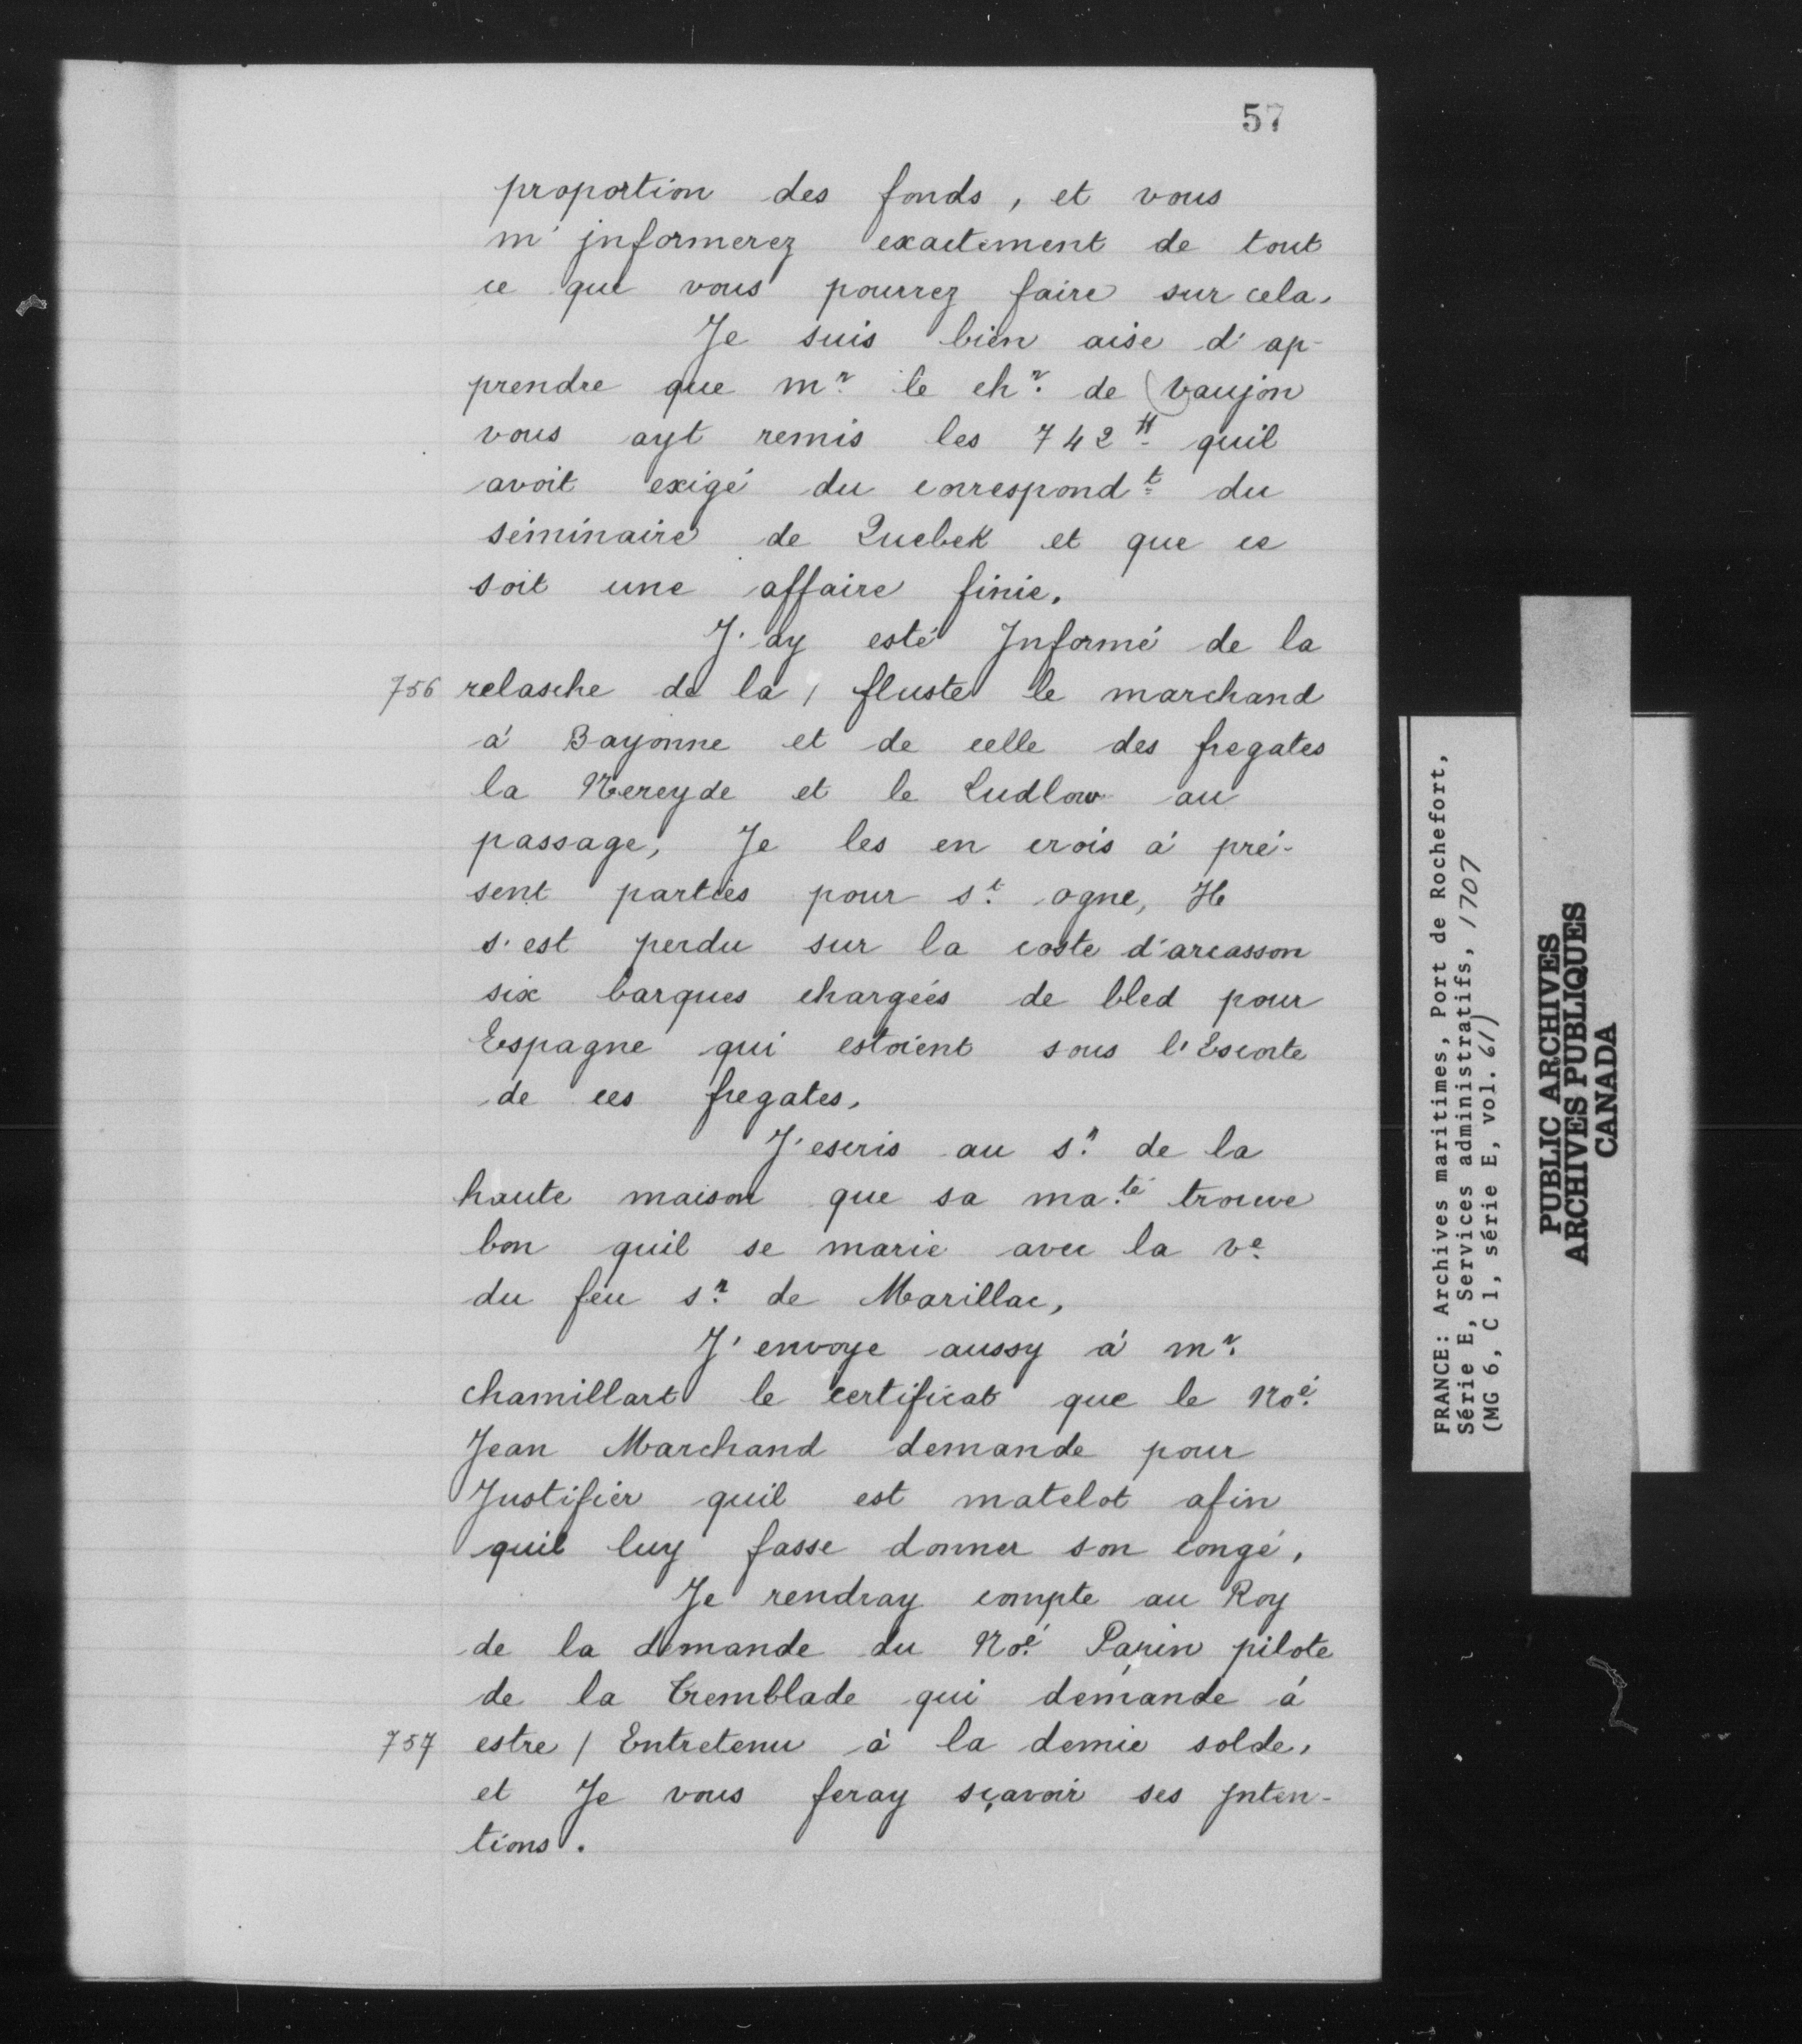 57
proportion des fonds, et vous
m'jnformerez exactement de tout
ce que vous pourrez faire sur cela.
Je suis bien aise d'ap-
prendre que mr. le chr. de Vaujon
vous ayt remis les 742 ₶ quil
avoit exigé du correspondt. du
séminaire de Quebek et que ce
soit une affaire finie.
J'ay esté Jnformé de la
756 relasche de la / fluste le marchand
à Bayonne et de celle des fregates
la Nereyde et le Ludlow au
passage, Je les en crois à pré-
sent parties pour st. ogne, Il
s'est perdu sur la coste d'arcasson
six barques chargées de bled pour
Espagne qui estoient sous l'Escorte
de ces fregates.
J'escris au sr. de la
haute maison que sa ma.té trouve
bon quil se marie avec la ve.
du feu sr. de Marillac,
J'envoye aussy à mr.
chamillart le certificat que le Noé.
Jean Marchand demande pour
Justifier quil est matelot afin
quil luy fasse donner son congé,
Je rendray compte au Roy
de la demande du Noé. pilote
de la Tremblade qui demande à
757 estre / Entretenu à la demie solde,
et Je vous feray sçavoir ses jnten-
tions.
FRANCE: Archives maritimes, Port de Rochefort,
Série E, Services administratifs, 1707
(MG 6, C 1, série E, vol. 61)
PUBLIC ARCHIVES
ARCHIVES PUBLIQUES
CANADA